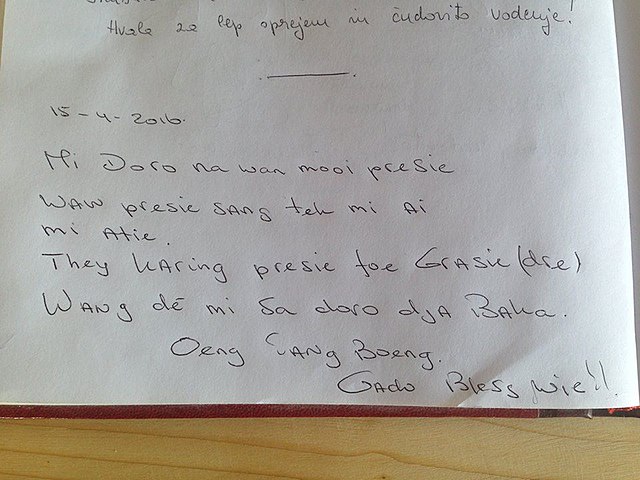 Hvala za lep sprejem in čudovito vodenje!
15-4-2016.
Mi Doro na wan mooi presie
WAW presie SANG teh mi Ai
mi Atie.
They KAring presie foe GRASie (dre)
WANG dé mi Sa doro djA BAka.
Oeng TANg Boeng.
GAdo Bless wie!!.